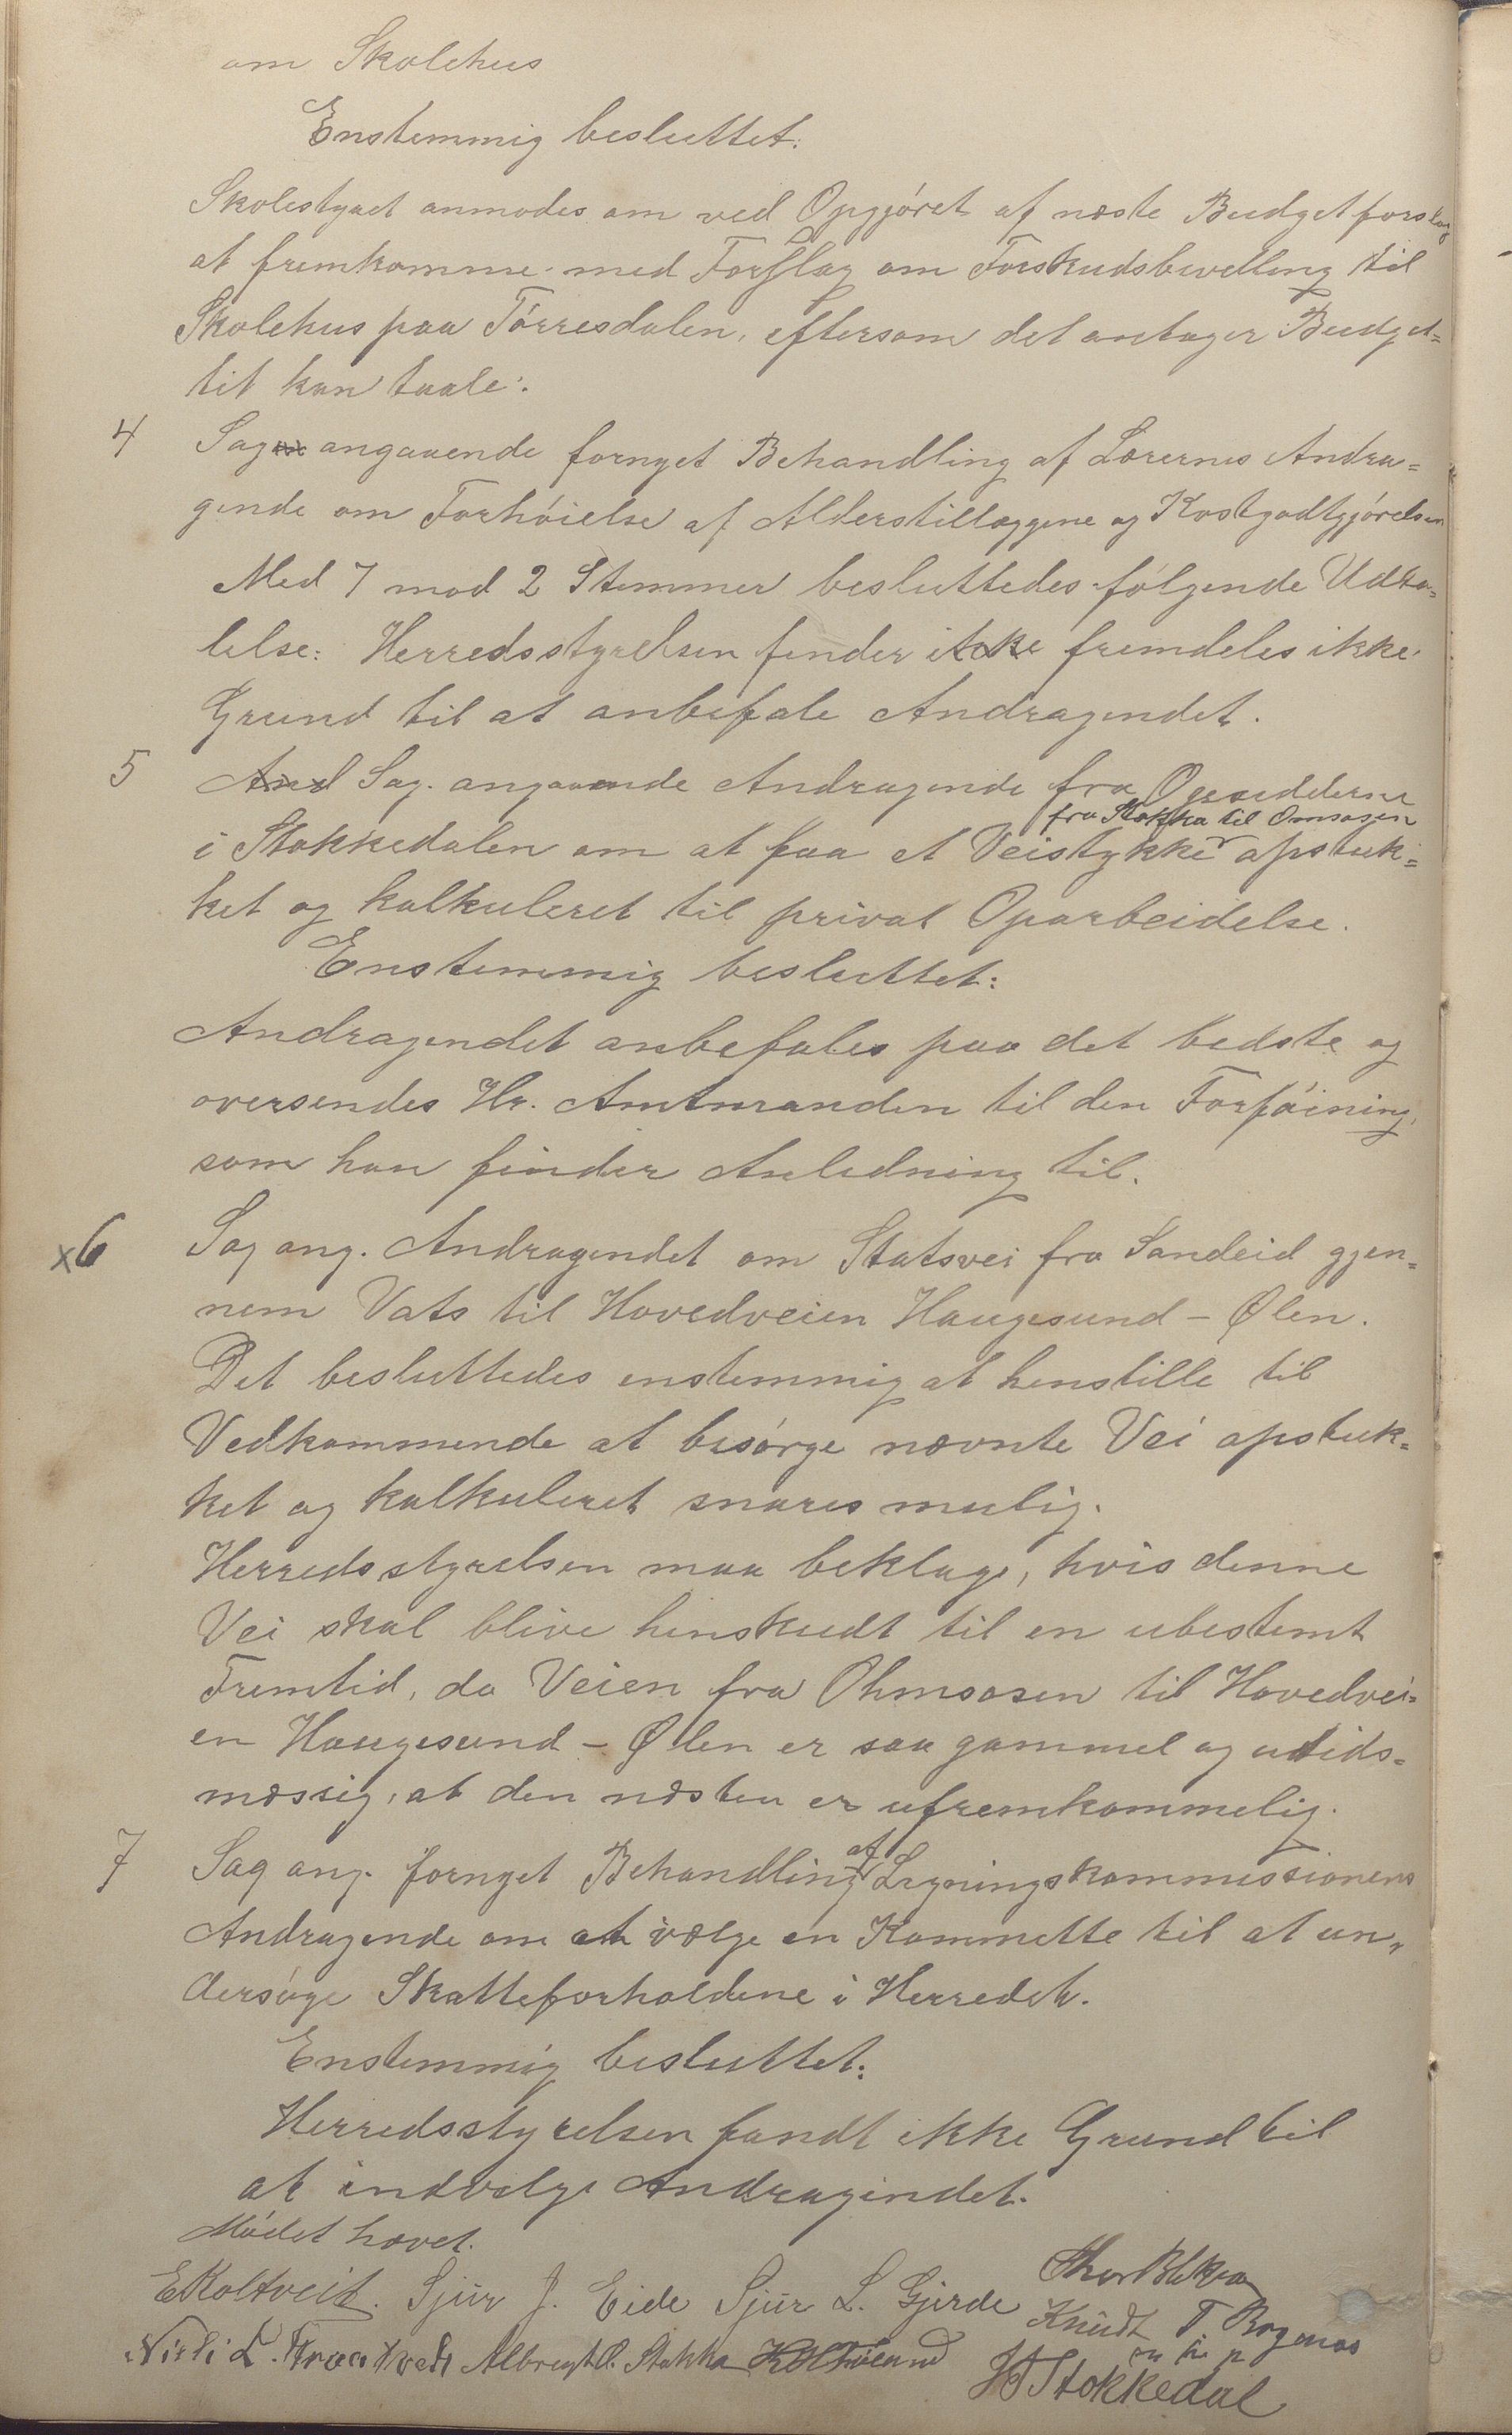 om Skolehus
Enstemmig besluttet:
Skolestyret anmodes om ved Opgjöret af næste Budgetforslag
at fremkomme med Forslag om Forskudsbevilling til
Skolehus paa Törresdalen, eftersom det antager Budget=
tit kan taale.
4 Sagen angaaende fornyet Behandling af Lærernes Andra=
gende om Forhöielse af Alderstillæggene og Kostgodtgjörelsen
Med 7 mod 2 Stemmer besluttedes følgende Udta=
lelse: Herredsstyrelsen finder ikke fremdeles ikke
Grund til at anbefale Andragendet.
5 And Sag. angaaende Andragende fra Opsidderne
fra Stokka til Omsosen
i Stokkedalen om at faa et Veistykke opstuk=
ket og kalkuleret til privat Oparbeidelse.
Enstemmig besluttet:
Andragendet anbefales paa det bedste og
oversendes Hr. Amtmanden til den Forföining,
som han finder Anledning til.
x6 Sag ang. Andragendet om Statsvei fra Sandeid gjen=
nem Vats til Hovedveien Haugesund – Ølen.
Det besluttedes enstemmig at henstille til
Vedkommende at besörge nævnte Vei opstuk=
ket og kalkuleret snares mulig.
Herredsstyrelsen maa beklage, hvis denne
Vei skal blive henskudt til en ubestemt
Fremtid, da Veien fra Ohmsosen til Hovedvei=
en Haugesund – Ølen er saa gammel og utids=
mæssig, at den næsten er ufremkommelig.
7 Sag ang. fornyet Behandling af Ligningskommissionens
Andragende om at vælge en Kommette til at un„
dersöge Skatteforholdene i Herredet.
Enstemmig besluttet:
Herredsstyrelsen fandt ikke Grund til
at indvelge Andragendet.
Mödet hævet.
E Koltveit. Sjur J. Eide Sjur L. Gjerde
Knudt T.
m. p. p.
Albregt O. Stokka
Stokkedal